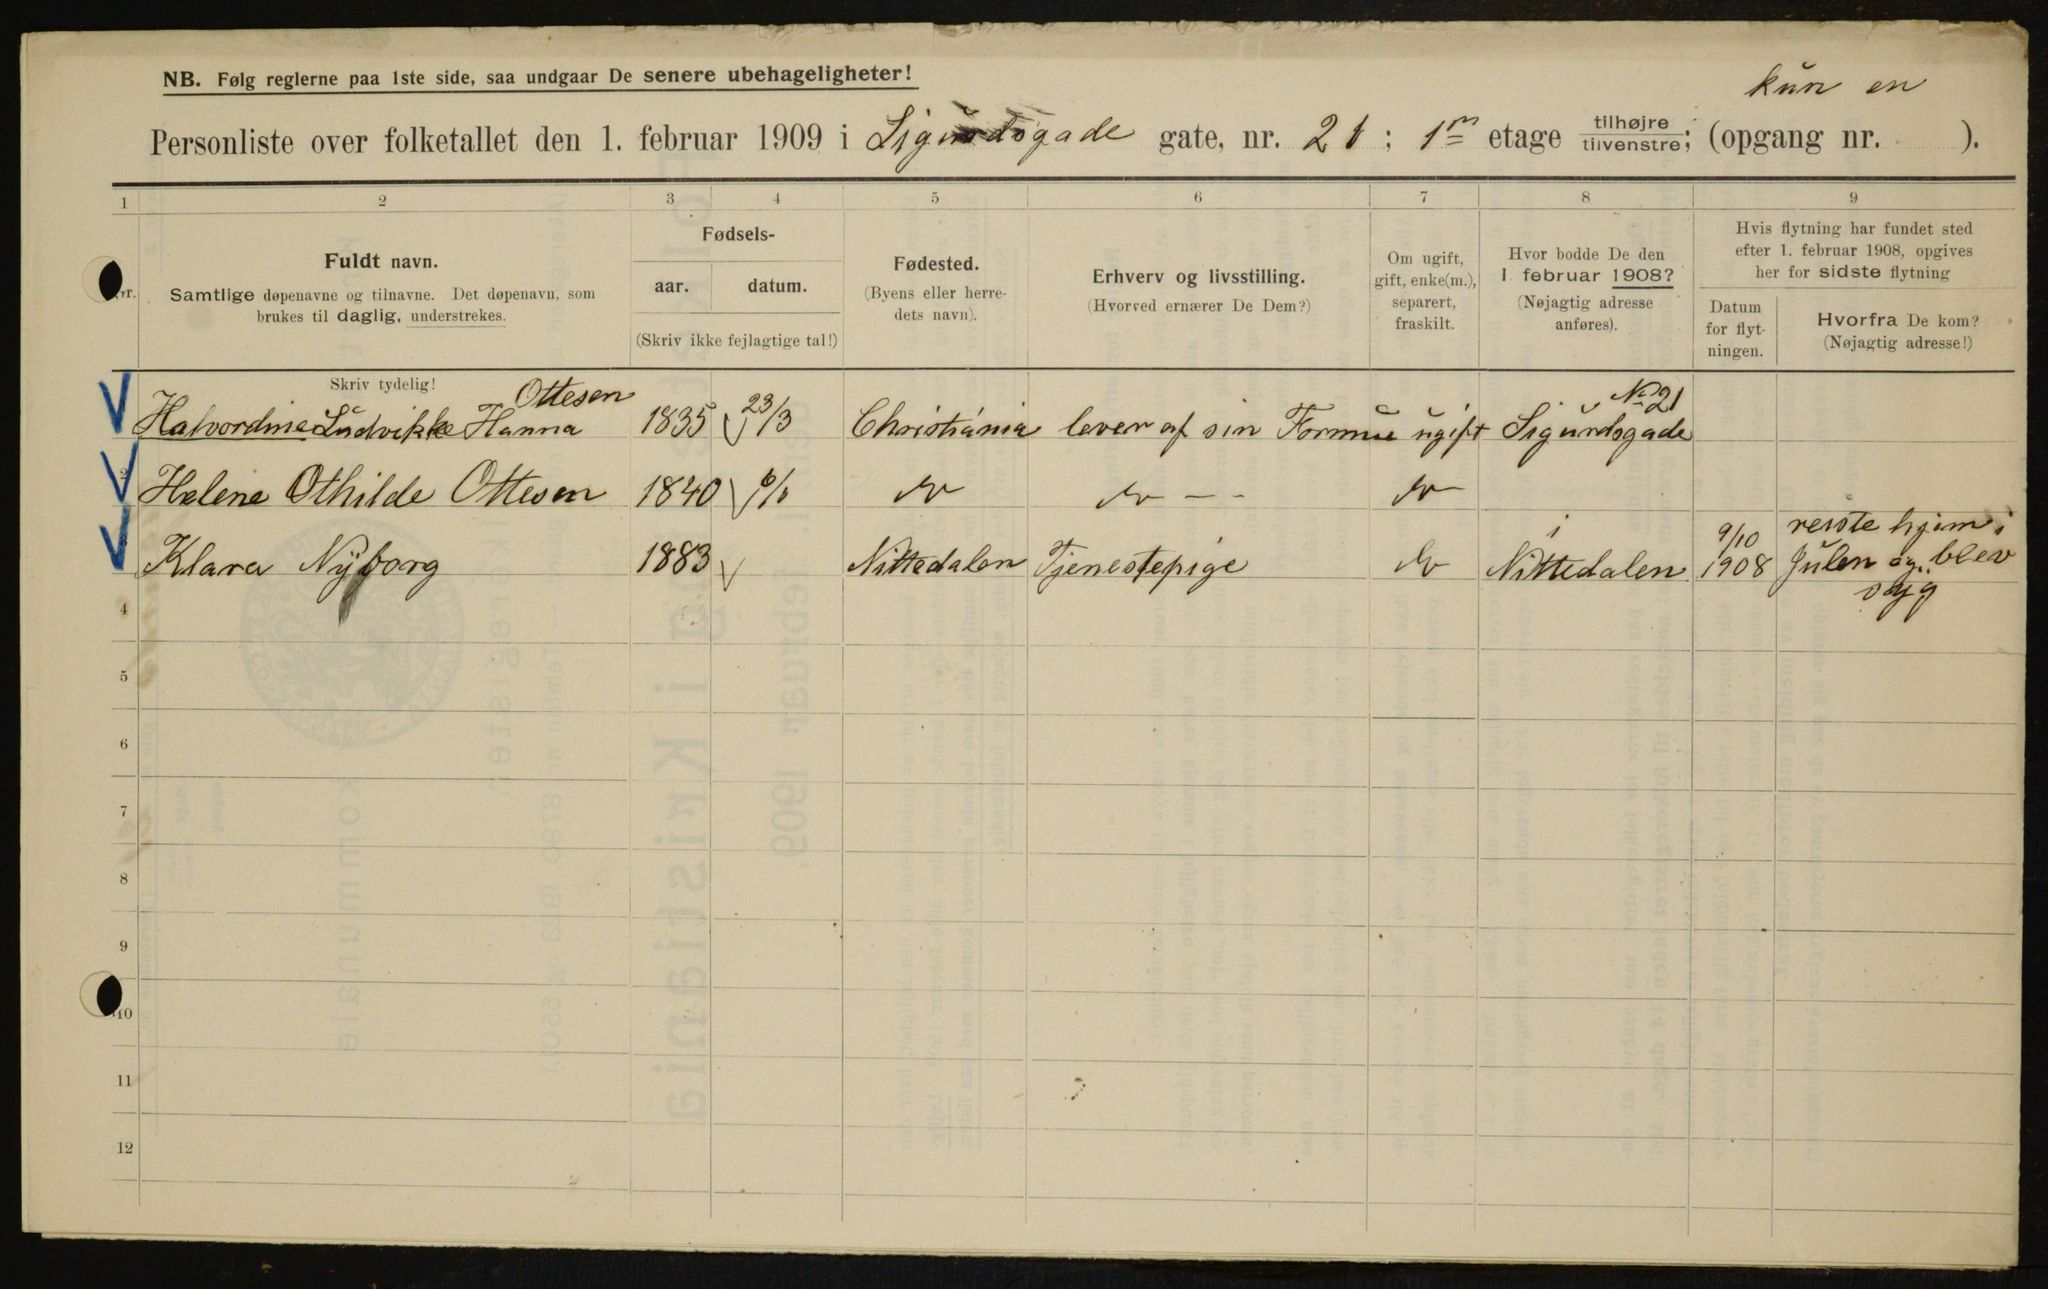 NB. Følg reglerne paa 1ste side, saa undgaar De senere ubehageligheter!
kun en
Personliste over folketallet den 1. februar 1909 i Sigurdsgade gate, nr. 21; 1ste etage tilhøjre tilvenstre; (opgang nr. ).
1 2 3 4 5 6 7 8 9
Nr.
Fuldt navn.
Samtlige døpenavne og tilnavne. Det døpenavn, som
brukes til daglig, understrekes.
Skriv tydelig!
Fødsels-
aar. datum.
(Skriv ikke fejlagtige tal!)
Fødested.
(Byens eller herre-
dets navn).
Erhverv og livsstilling.
(Hvorved ernærer De Dem?)
Om ugift,
gift, enke(m.),
separert,
fraskilt.
Hvor bodde De den
1. februar 1908?
(Nøjagtig adresse
anføres).
Hvis flytning har fundet sted
efter 1. februar 1908, opgives
her for sidste flytning
Datum
for flyt-
ningen.
Hvorfra De kom?
(Nøjagtig adresse!)
Ottesen No 21
Halvordine Ludvikke Hanna 1835 23/3 Christiania lever af sin Formue ugift Sigurdsgade
Helene Othilde Ottesen 1840
i 9/10 reiste hjem i
Klara Nyborg 1883 Nittedalen Tjenestepige Nittedalen 1908 Julen og blev
syg
4
5
6
7
8
9
10
11
12